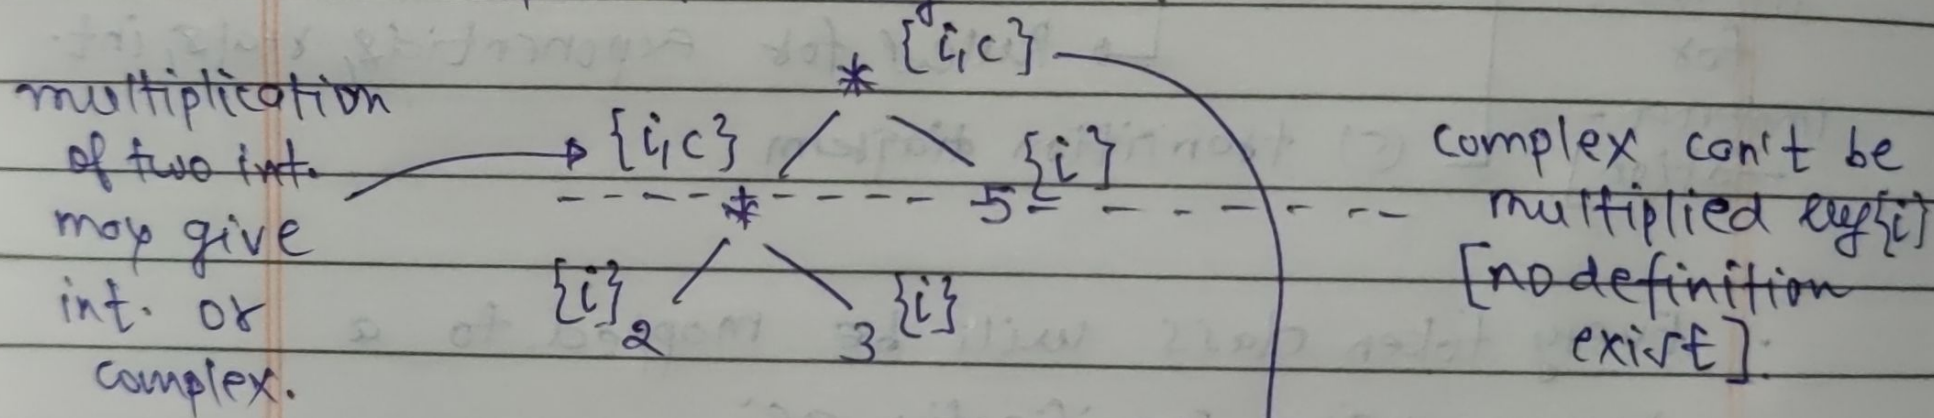 {i,c}
*
multiplication
of two int.
may give
int. or
complex.
{i,c}
{i}
*
5
{i}
2
3
{i}
complex can't be
multiplied {i}
[no definition
exist].